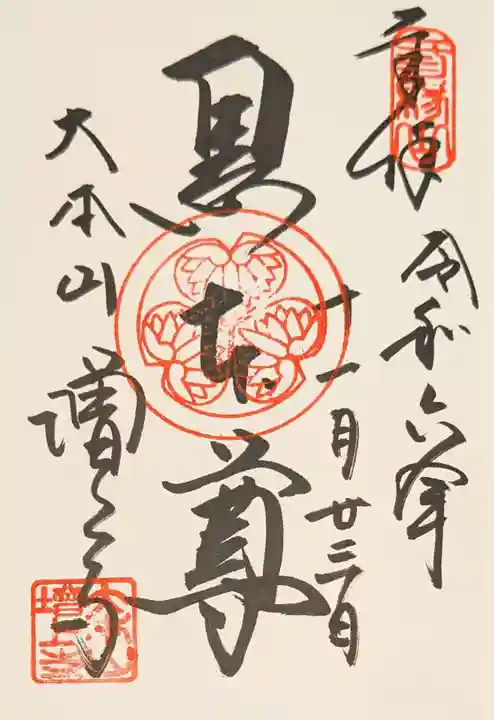 奉拝
令和六年
十一月廿三日
黒本尊
大本山 増上寺